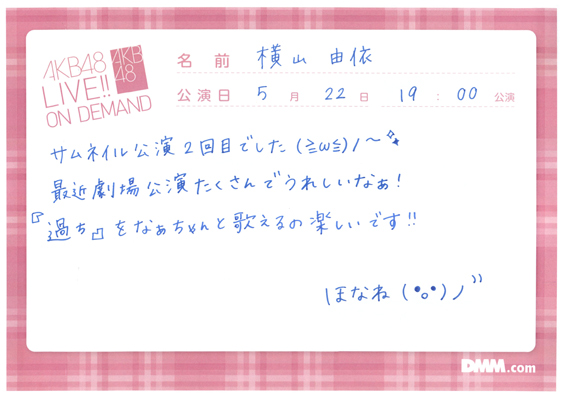 AKB48
LIVE!!
ON DEMAND
AKB
48
名前 横山 由依
公演日 5月 22日 19:00 公演
サムネイル公演2回目でした(≧ω≦)ﾉ～
最近劇場公演たくさんでうれしいなぁ!
『過ち』をなぁちゃんと歌えるの楽しいです!!
ほなね(•o•)ノ”
DMM.com